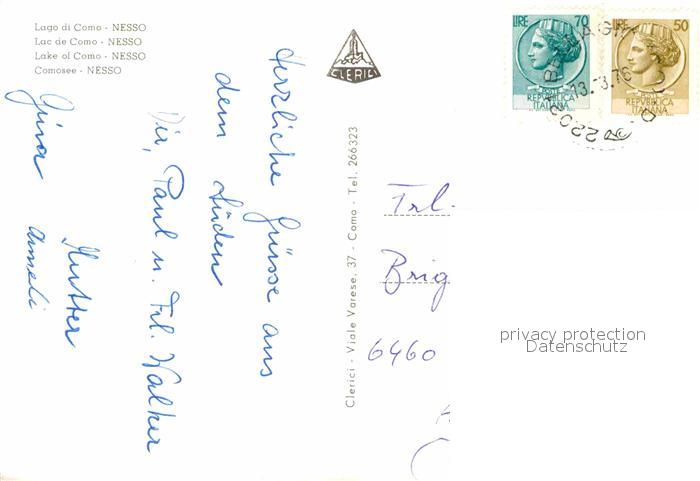 Lago di Como - NESSO
Lac de Como - NESSO
Lake of Como - NESSO
Comosee - NESSO
CLERICI
LIRE 70
POSTE
REPVBBLICA
ITALIANA
LIRE 50
POSTE
REPVBBLICA
ITALIANA
13.3.76
Herzliche Grüsse aus
dem Süden
Dir, Paul u. Frl. Walker
Mutter
Gina
Anneli
Clerici - Viale Varese, 37 - Como - Tel. 266323
Frl.
Brig
6460
privacy protection
Datenschutz